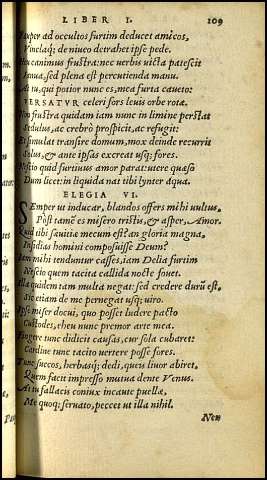 LIBER I. 109
semper ad occultos furtim deducet amicos,
Vinclaq; de niueo detrahet ipse pede.
Heu canimus frustra: nec uerbis uicta patescit
Ianua, sed plena est percutienda manu.
At tu, qui potior nunc es, mea furta caueto:
VERSATVR celeri fors leuis orbe rotæ.
Non frustra quidam iam nunc in limine perstat
Sedulus, ac crebrò prospicit, ac refugit:
Et simulat transire domum, mox deinde recurrit
Solus, & ante ipsas excreat usq; fores.
Nescio quid furtiuus amor parat: utere quæso
Dum licet: in liquida nat tibi lynter aqua.
ELEGIA VI.
SEmper ut inducar, blandos offers mihi uultus,
Pòst tamē es misero tristis, & asper, Amor.
Quid tibi sæuitiæ mecum est? an gloria magna,
Insidias homini composuisse Deum?
Iam mihi tenduntur casses, iam Delia furtim
Nescio quem tacita callida nocte fouet.
Illa quidem tam multa negat: sed credere durū est,
Sic etiam de me pernegat usq; uiro.
Ipse miser docui, quo posset ludere pacto
Custodes, eheu nunc premor arte mea.
Fingere tunc didicit causas, cur sola cubaret:
Cardine tunc tacito uertere posse fores.
Tunc succos, herbasq; dedi, queis liuor abiret,
Quem facit impresso mutua dente Venus.
At tu fallacis coniux incaute puellæ,
Me quoq; seruato, peccet ut illa nihil.
Neu